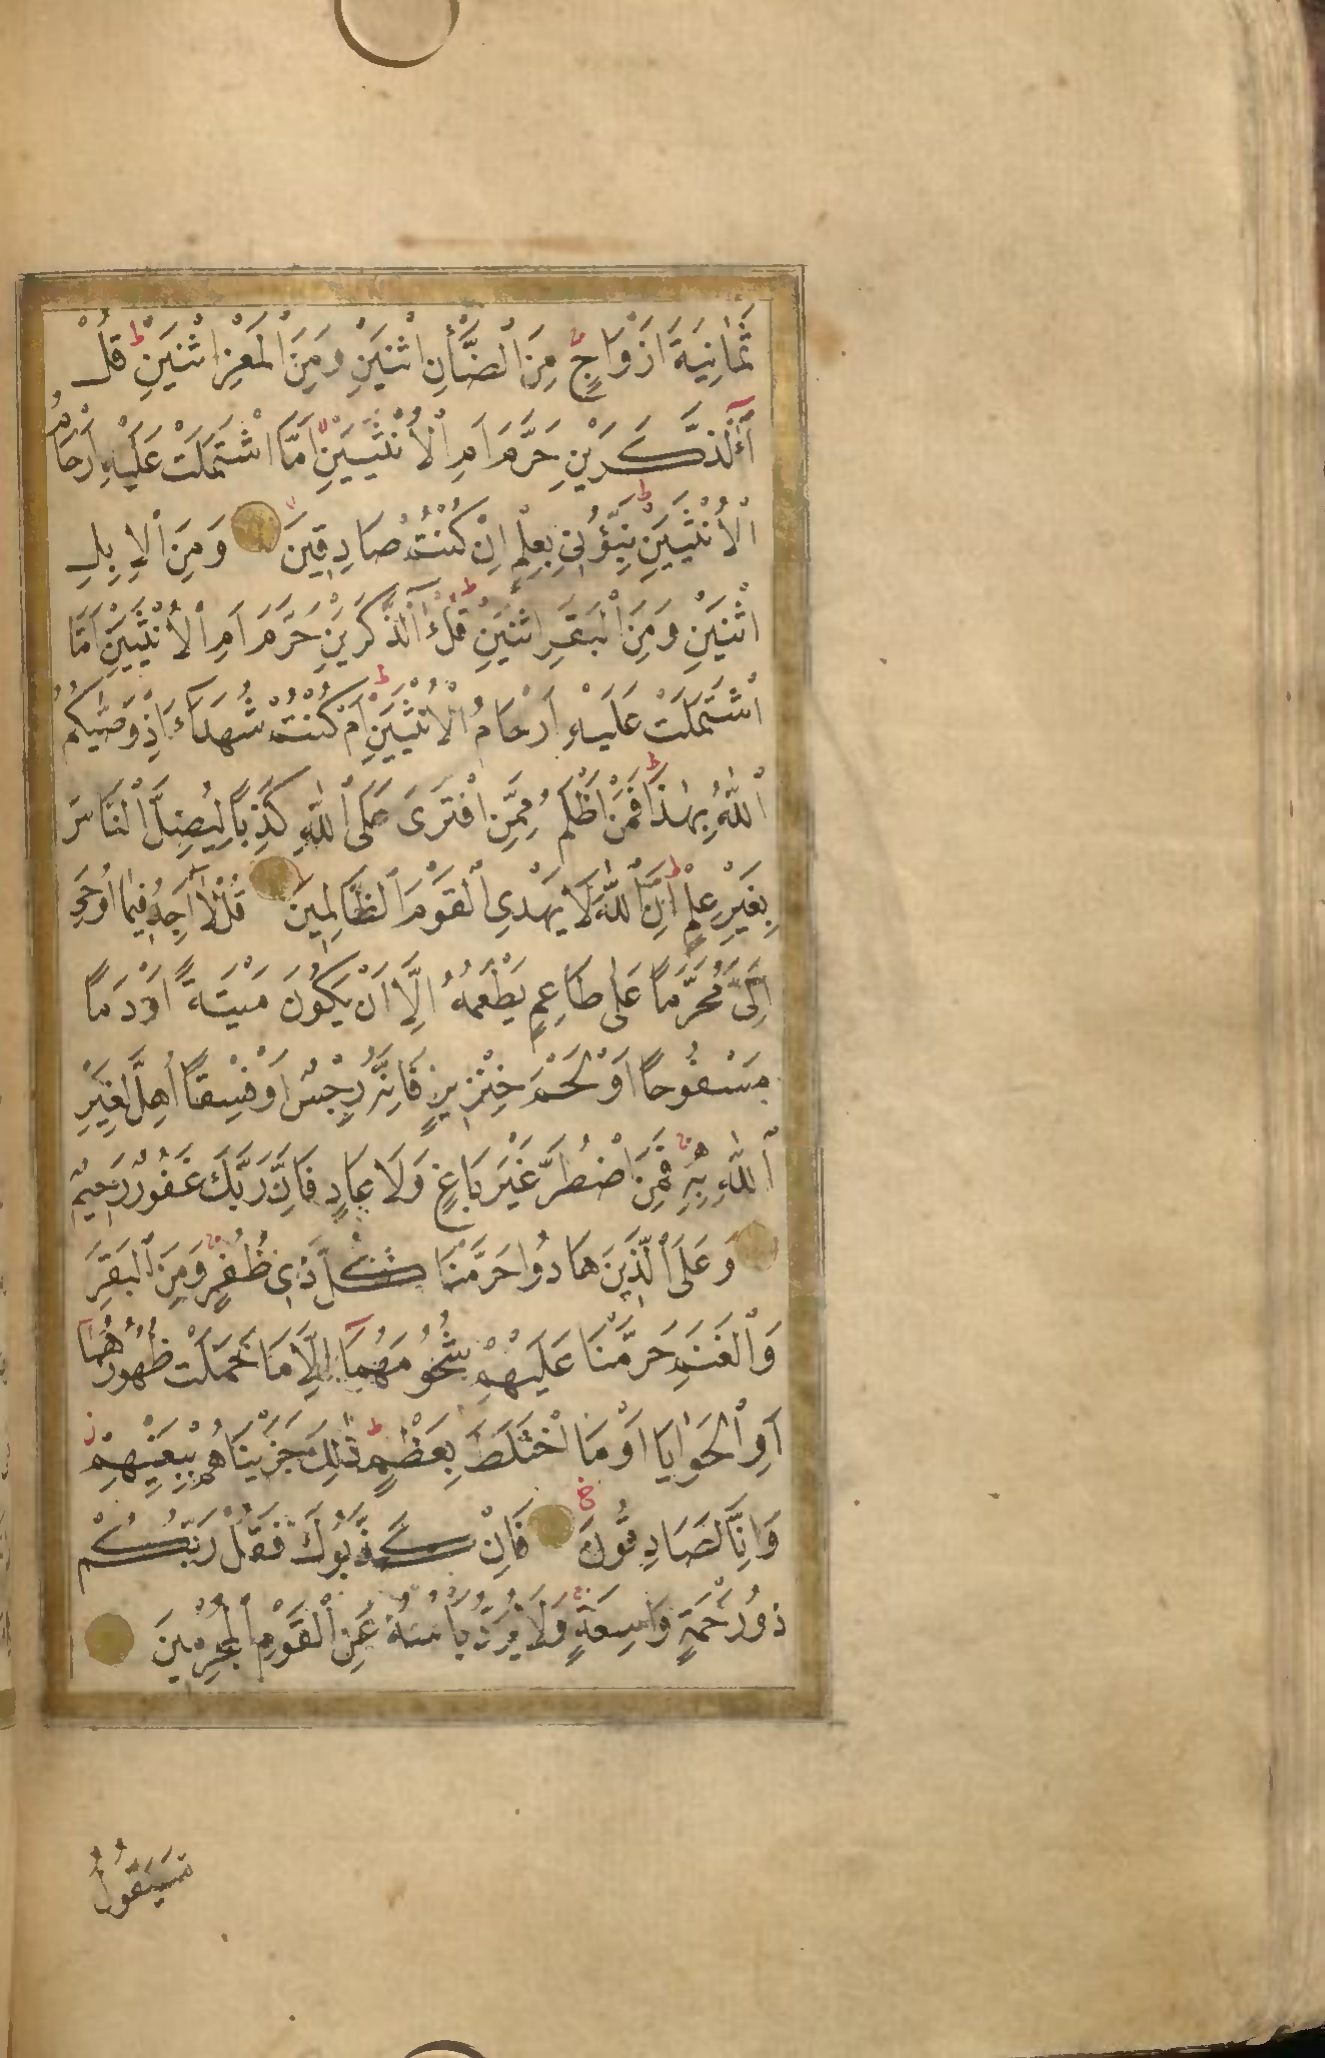 ثَمَانِيَةَ اَزْوَاجٍ مِنَ الضَّأْنِ اثْنَيْنِ وَمِنَ الْمَعْزِ اثْنَيْنِ ط قُلْ
آٰلذَّكَرَيْنِ حَرَّمَ اَمِ الْاُنْثَيَيْنِ اَمَّا اشْتَمَلَتْ عَلَيْهِ اَرْحَامُ
الْاُنْثَيَيْنِ ط نَبِّؤُنِي بِعِلْمٍ اِنْ كُنْتُمْ صَادِقِينَ وَمِنَ الْاِبِلِ
اثْنَيْنِ وَمِنَ الْبَقَرِ اثْنَيْنِ ط قُلْ آٰلذَّكَرَيْنِ حَرَّمَ اَمِ الْاُنْثَيَيْنِ اَمَّا
اشْتَمَلَتْ عَلَيْهِ اَرْحَامُ الْاُنْثَيَيْنِ ط اَمْ كُنْتُمْ شُهَدَاءَ اِذْ وَصّٰيكُمُ
اللّٰهُ بِهٰذَا ط فَمَنْ اَظْلَمُ مِمَّنِ افْتَرَى عَلَى اللّٰهِ كَذِبًا لِيُضِلَّ النَّاسَ
بِغَيْرِ عِلْمٍ ط اِنَّ اللّٰهَ لَا يَهْدِي الْقَوْمَ الظَّالِمِينَ قُلْ لَآ اَجِدُ فِيمَا اُوحِيَ
اِلَيَّ مُحَرَّمًا عَلٰى طَاعِمٍ يَطْعَمُهُ اِلَّا اَنْ يَكُونَ مَيْتَةً اَوْ دَمًا
مَسْفُوحًا اَوْ لَحْمَ خِنْزِيرٍ فَاِنَّهُ رِجْسٌ اَوْ فِسْقًا اُهِلَّ لِغَيْرِ
اللّٰهِ بِهِ فَمَنِ اضْطُرَّ غَيْرَ بَاغٍ وَلَا عَادٍ فَاِنَّ رَبَّكَ غَفُورٌ رَحِيمٌ
وَعَلَى الَّذِينَ هَادُوا حَرَّمْنَا كُلَّ ذِي ظُفُرٍ وَمِنَ الْبَقَرِ
وَالْغَنَمِ حَرَّمْنَا عَلَيْهِمْ شُحُومَهُمَآ اِلَّا مَا حَمَلَتْ ظُهُورُهُمَآ
اَوِ الْحَوَايَا اَوْ مَا اخْتَلَطَ بِعَظْمٍ ط ذٰلِكَ جَزَيْنَاهُمْ بِبَغْيِهِمْ ز
وَاِنَّا لَصَادِقُونَ فَاِنْ كَذَّبُوكَ فَقُلْ رَبُّكُمْ
ذُو رَحْمَةٍ وَاسِعَةٍ وَلَا يُرَدُّ بَأْسُهُ عَنِ الْقَوْمِ الْمُجْرِمِينَ
سَيَقُولُ